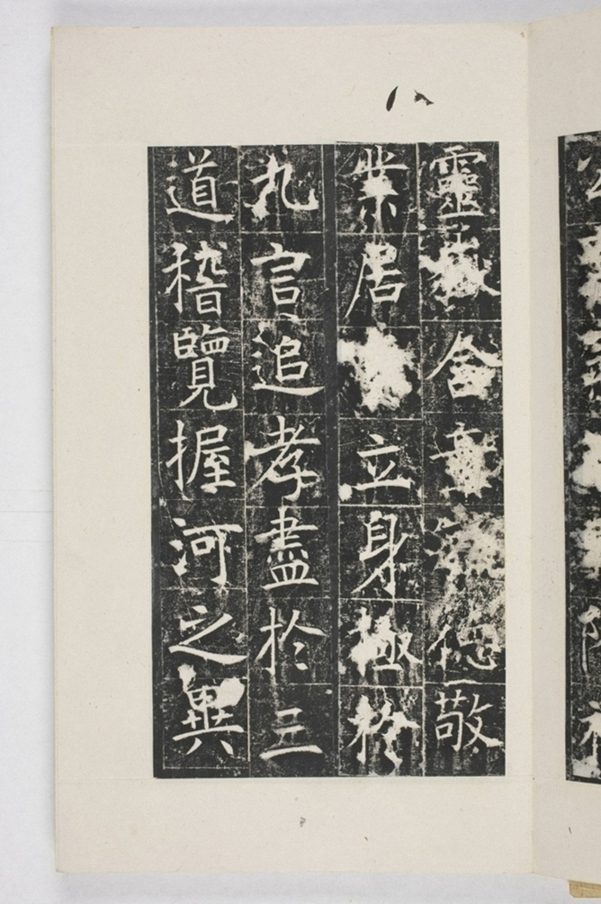 八
靈含章德敬
業居立身極於
九言追孝盡於三
道稽覽握河之異